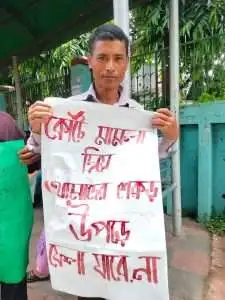 কোর্টে মামলা
দিয়ে
আমাদের শেকড়
উপড়ে
ফেলা যাবে,না